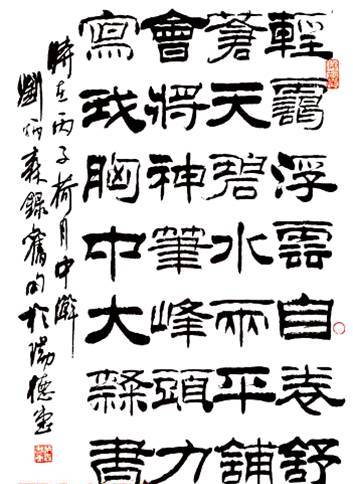 輕靄浮雲自卷舒
蒼天碧水兩平鋪
會將神筆峰頭力
寫我胸中大隸書
時在丙子荷月中澣
劉炳森錄舊句於德堂